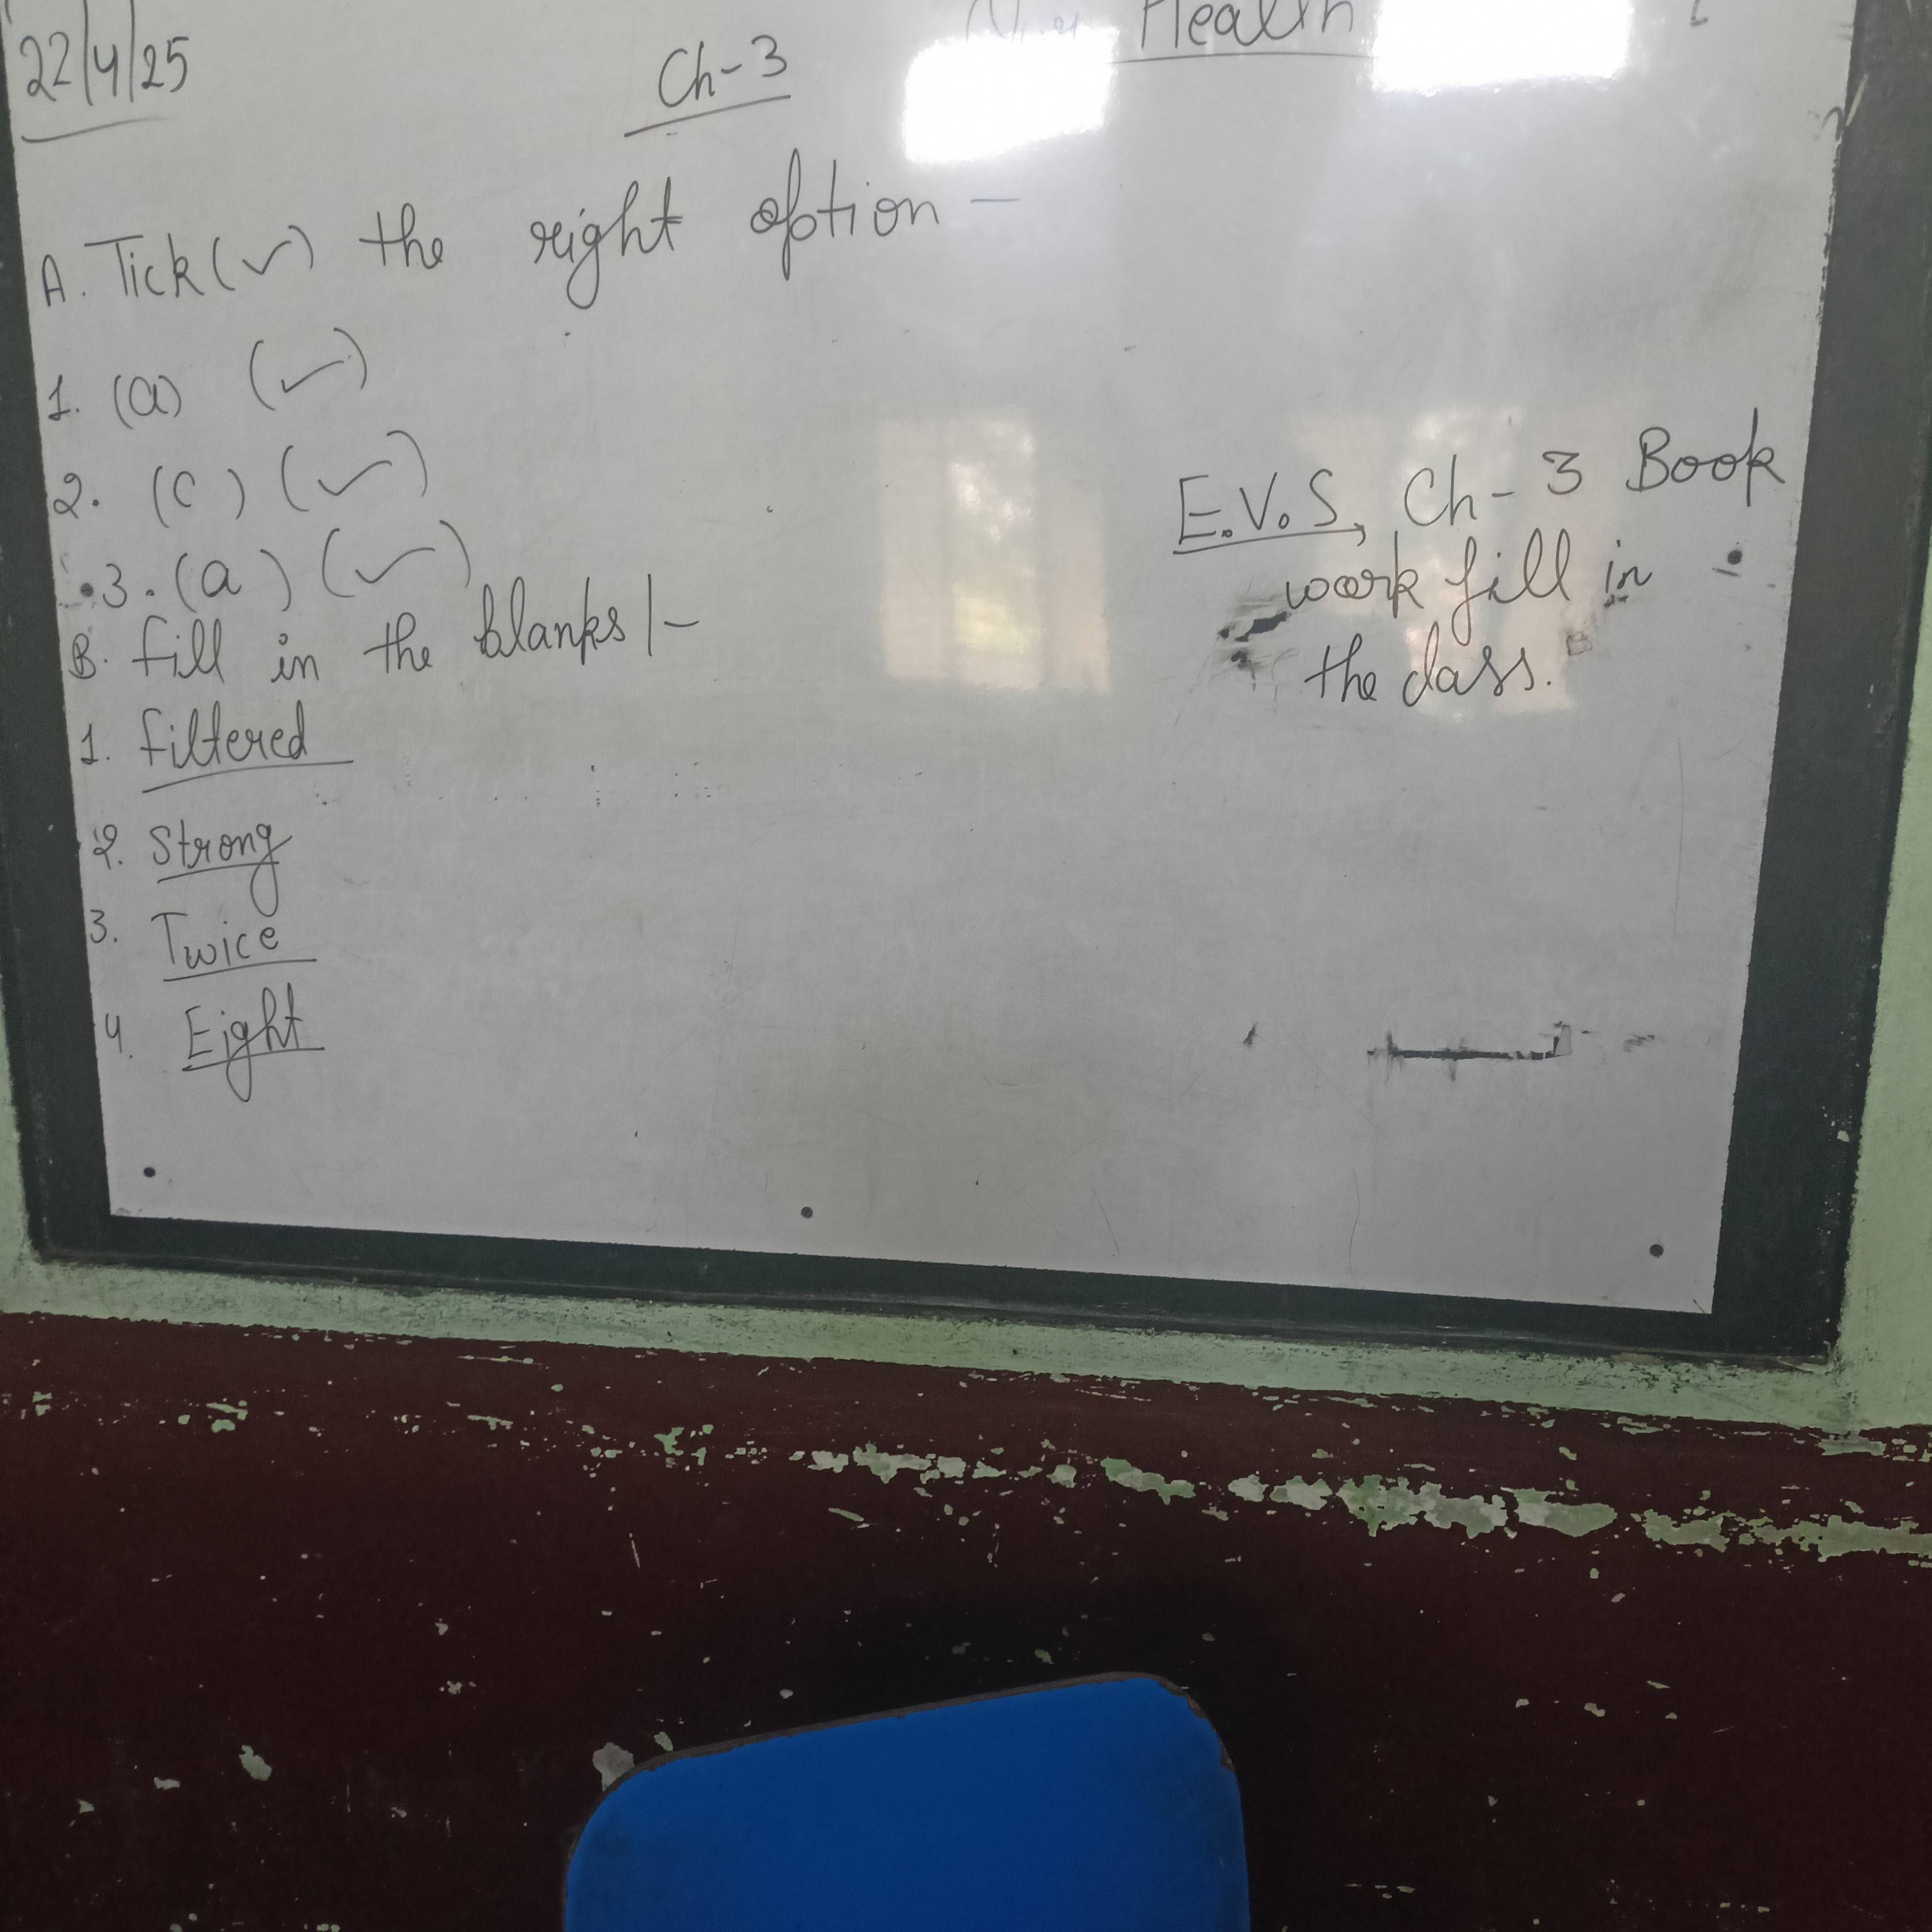 22/4/25
Ch-3
Health
A. Tick (✓) the right option -
1. (a) (✓)
2. (c) (✓)
3. (a) (✓)
B. fill in the blanks/-
1. filtered
2. Strong
3. Twice
4. Eight
E.V.S, Ch-3 Book
work fill in
the class.